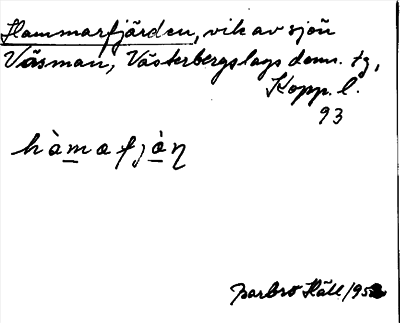 Hammarfjärden, vik av sjön
Väsman, Västerbergslags doms. tg,
Kopp. l.
93
hàmafjàṇ
Barbro Häll/195